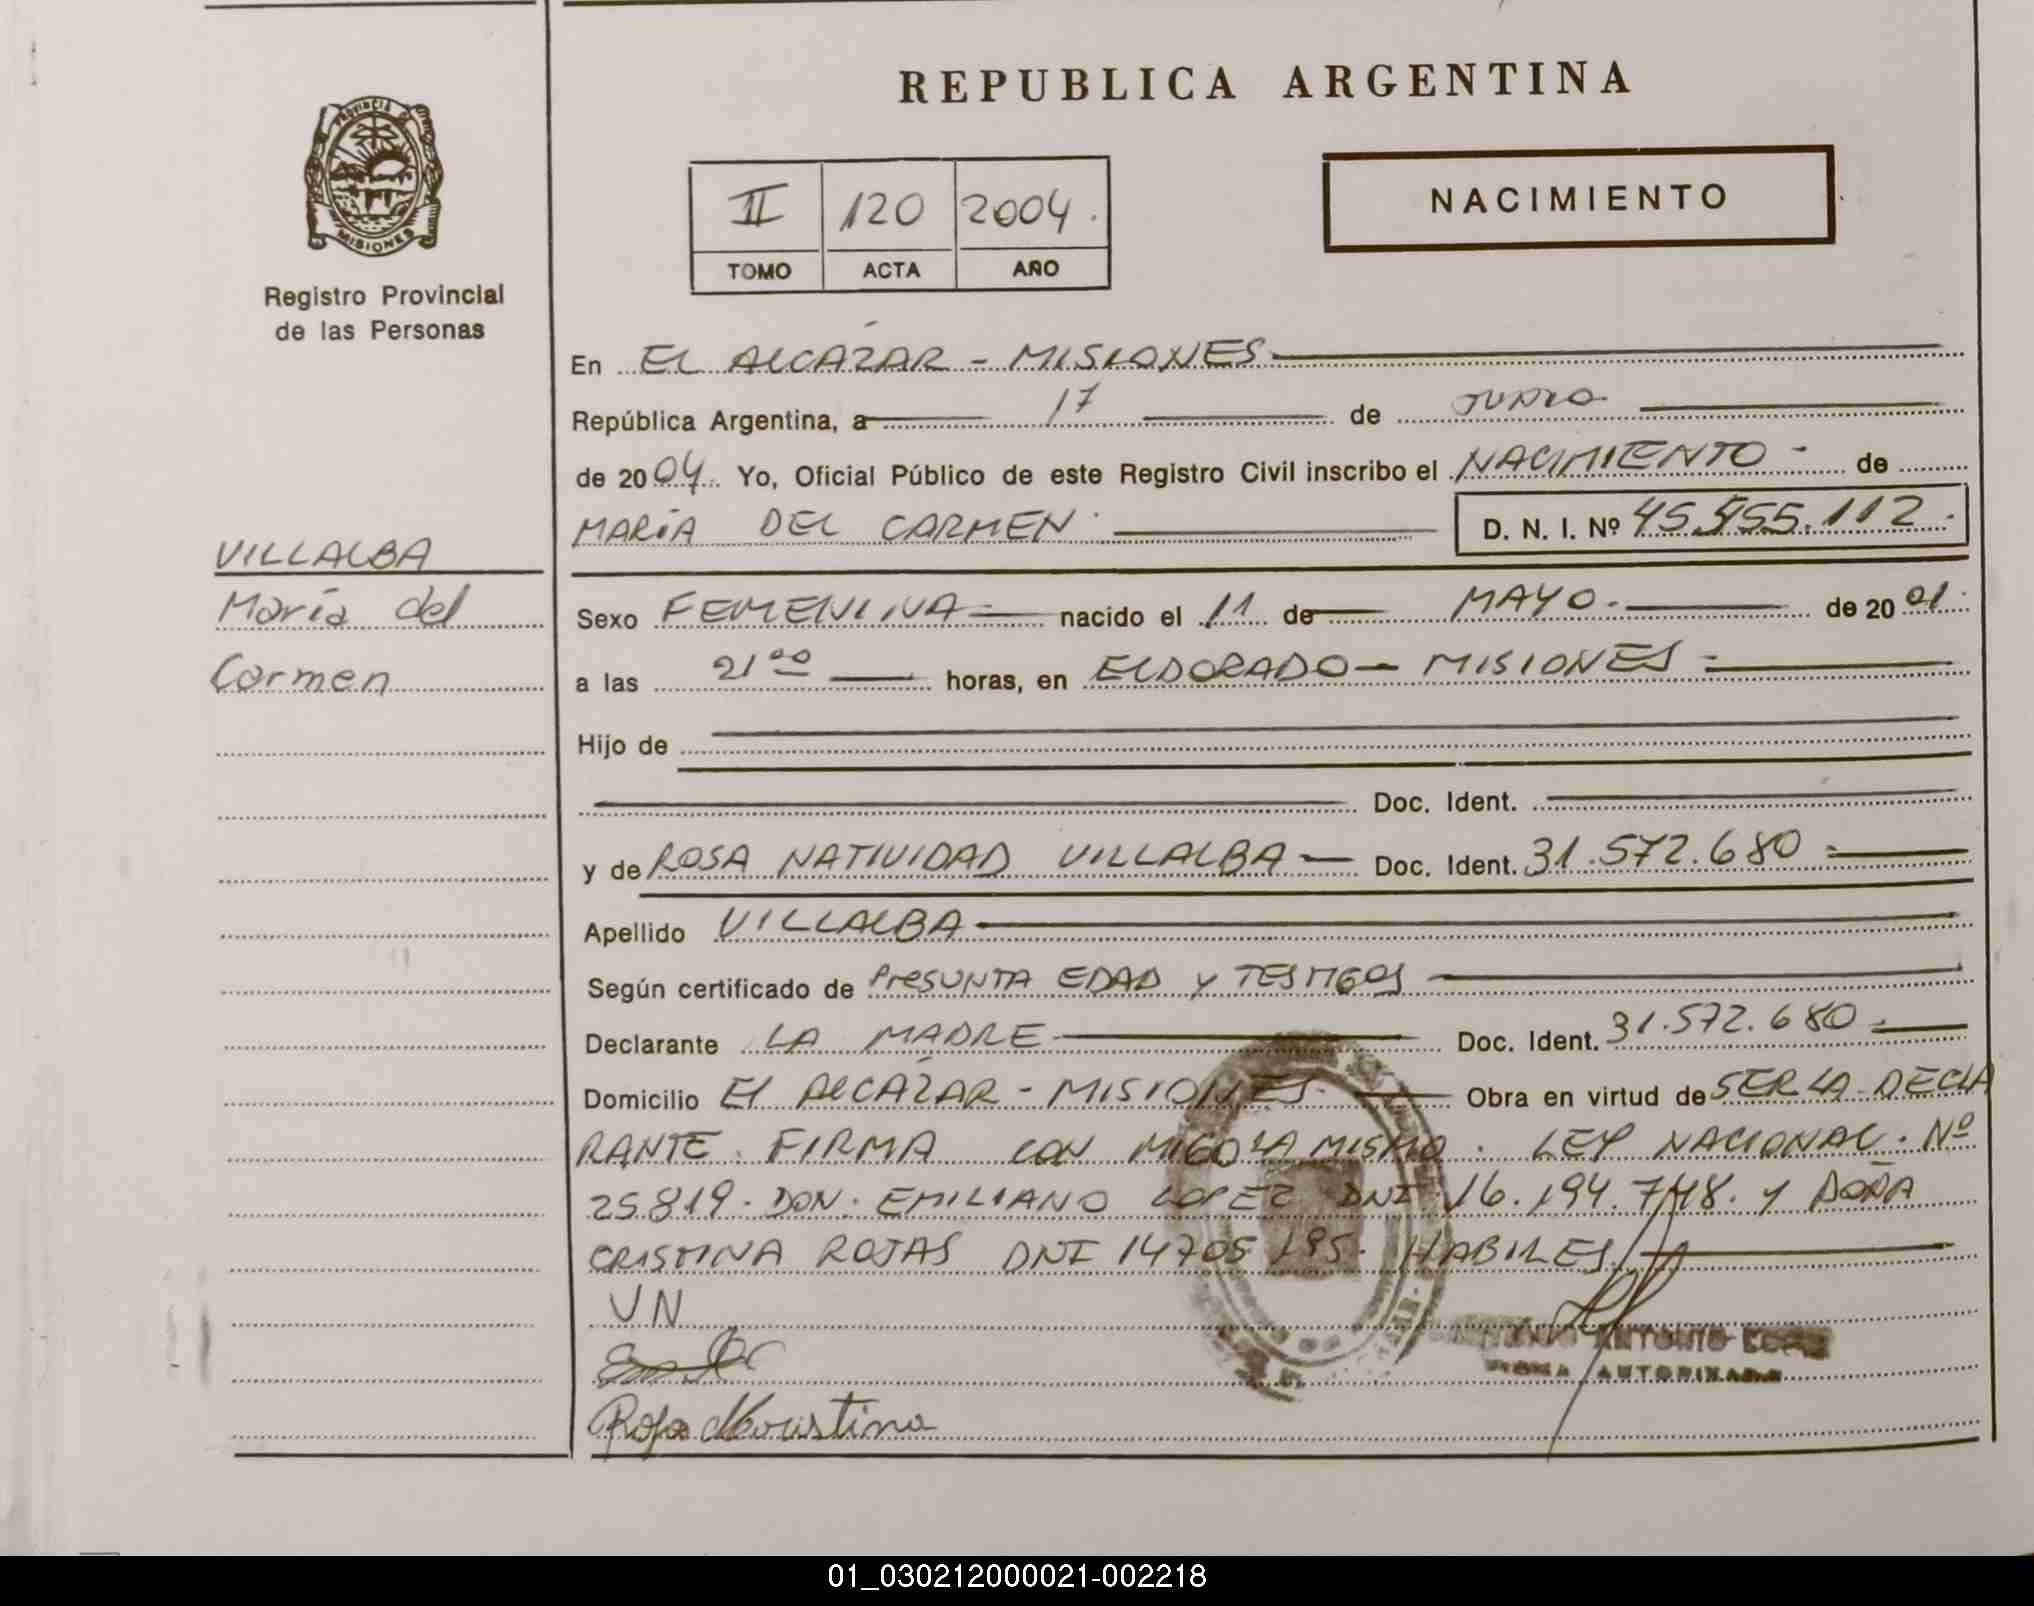 REPUBLICA ARGENTINA
PROVINCIA DE
MISIONES
Registro Provincial
de las Personas
II 120 2004.
TOMO ACTA AÑO
NACIMIENTO
En EL ALCAZAR - MISIONES
República Argentina, a 17 de JUNIO
de 2004 Yo, Oficial Público de este Registro Civil inscribo el NACIMIENTO - de
MARÍA DEL CARMEN D. N. I. Nº 45.455.112.
VILLALBA
María del
Carmen
Sexo FEMENINA nacido el 11 de MAYO de 2001
a las 21 00 horas, en ELDORADO - MISIONES
Hijo de
Doc. Ident.
y de ROSA NATIVIDAD VILLALBA Doc. Ident. 31.572.680
Apellido VILLALBA
Según certificado de PreSUNTA EDAD y TESTIGOS
Declarante LA MADRE Doc. Ident. 31.572.680
Domicilio El AlCAZAR - MISIONES Obra en virtud de SER LA DECLA
RANTE. FIRMA CON MIGO LA MISMO. LEY NACIONAL. Nº
25819. DON. EMILIANO LOPEZ DNI 16.194.748. y DOÑA
CRISTINA ROJAS DNI 14705195. HABILES
VN
ANTONIO
AUTORIZADA
01_030212000021-002218